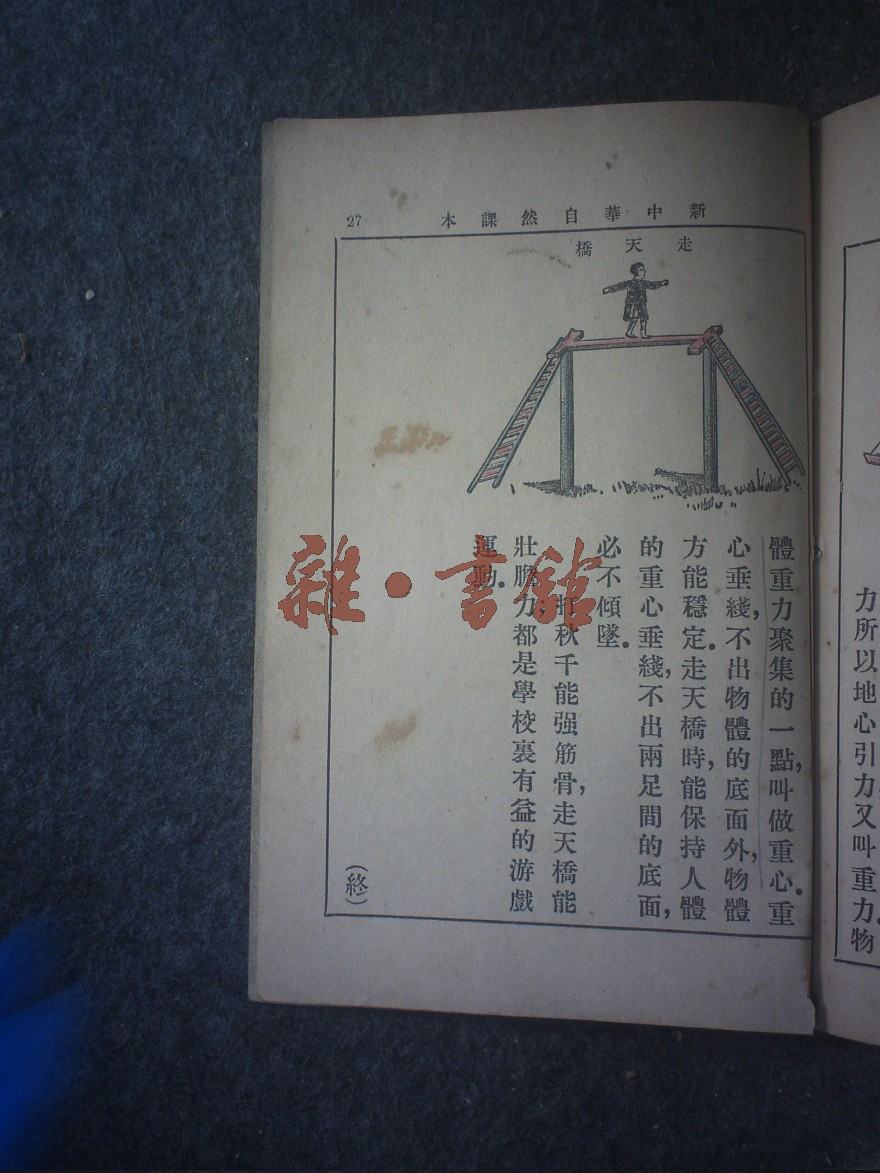 新中華自然課本
27
走天橋
力所以地心引力，又叫重力。物
體重力聚集的一點，叫做重心。重
心垂綫，不出物體的底面外，物體
方能穩定。走天橋時，能保持人體
的重心垂綫，不出兩足間的底面，
必不傾墜。
打秋千能强筋骨，走天橋能
壯膽力，都是學校裏有益的游戲
運動。
(終)
雜·書館